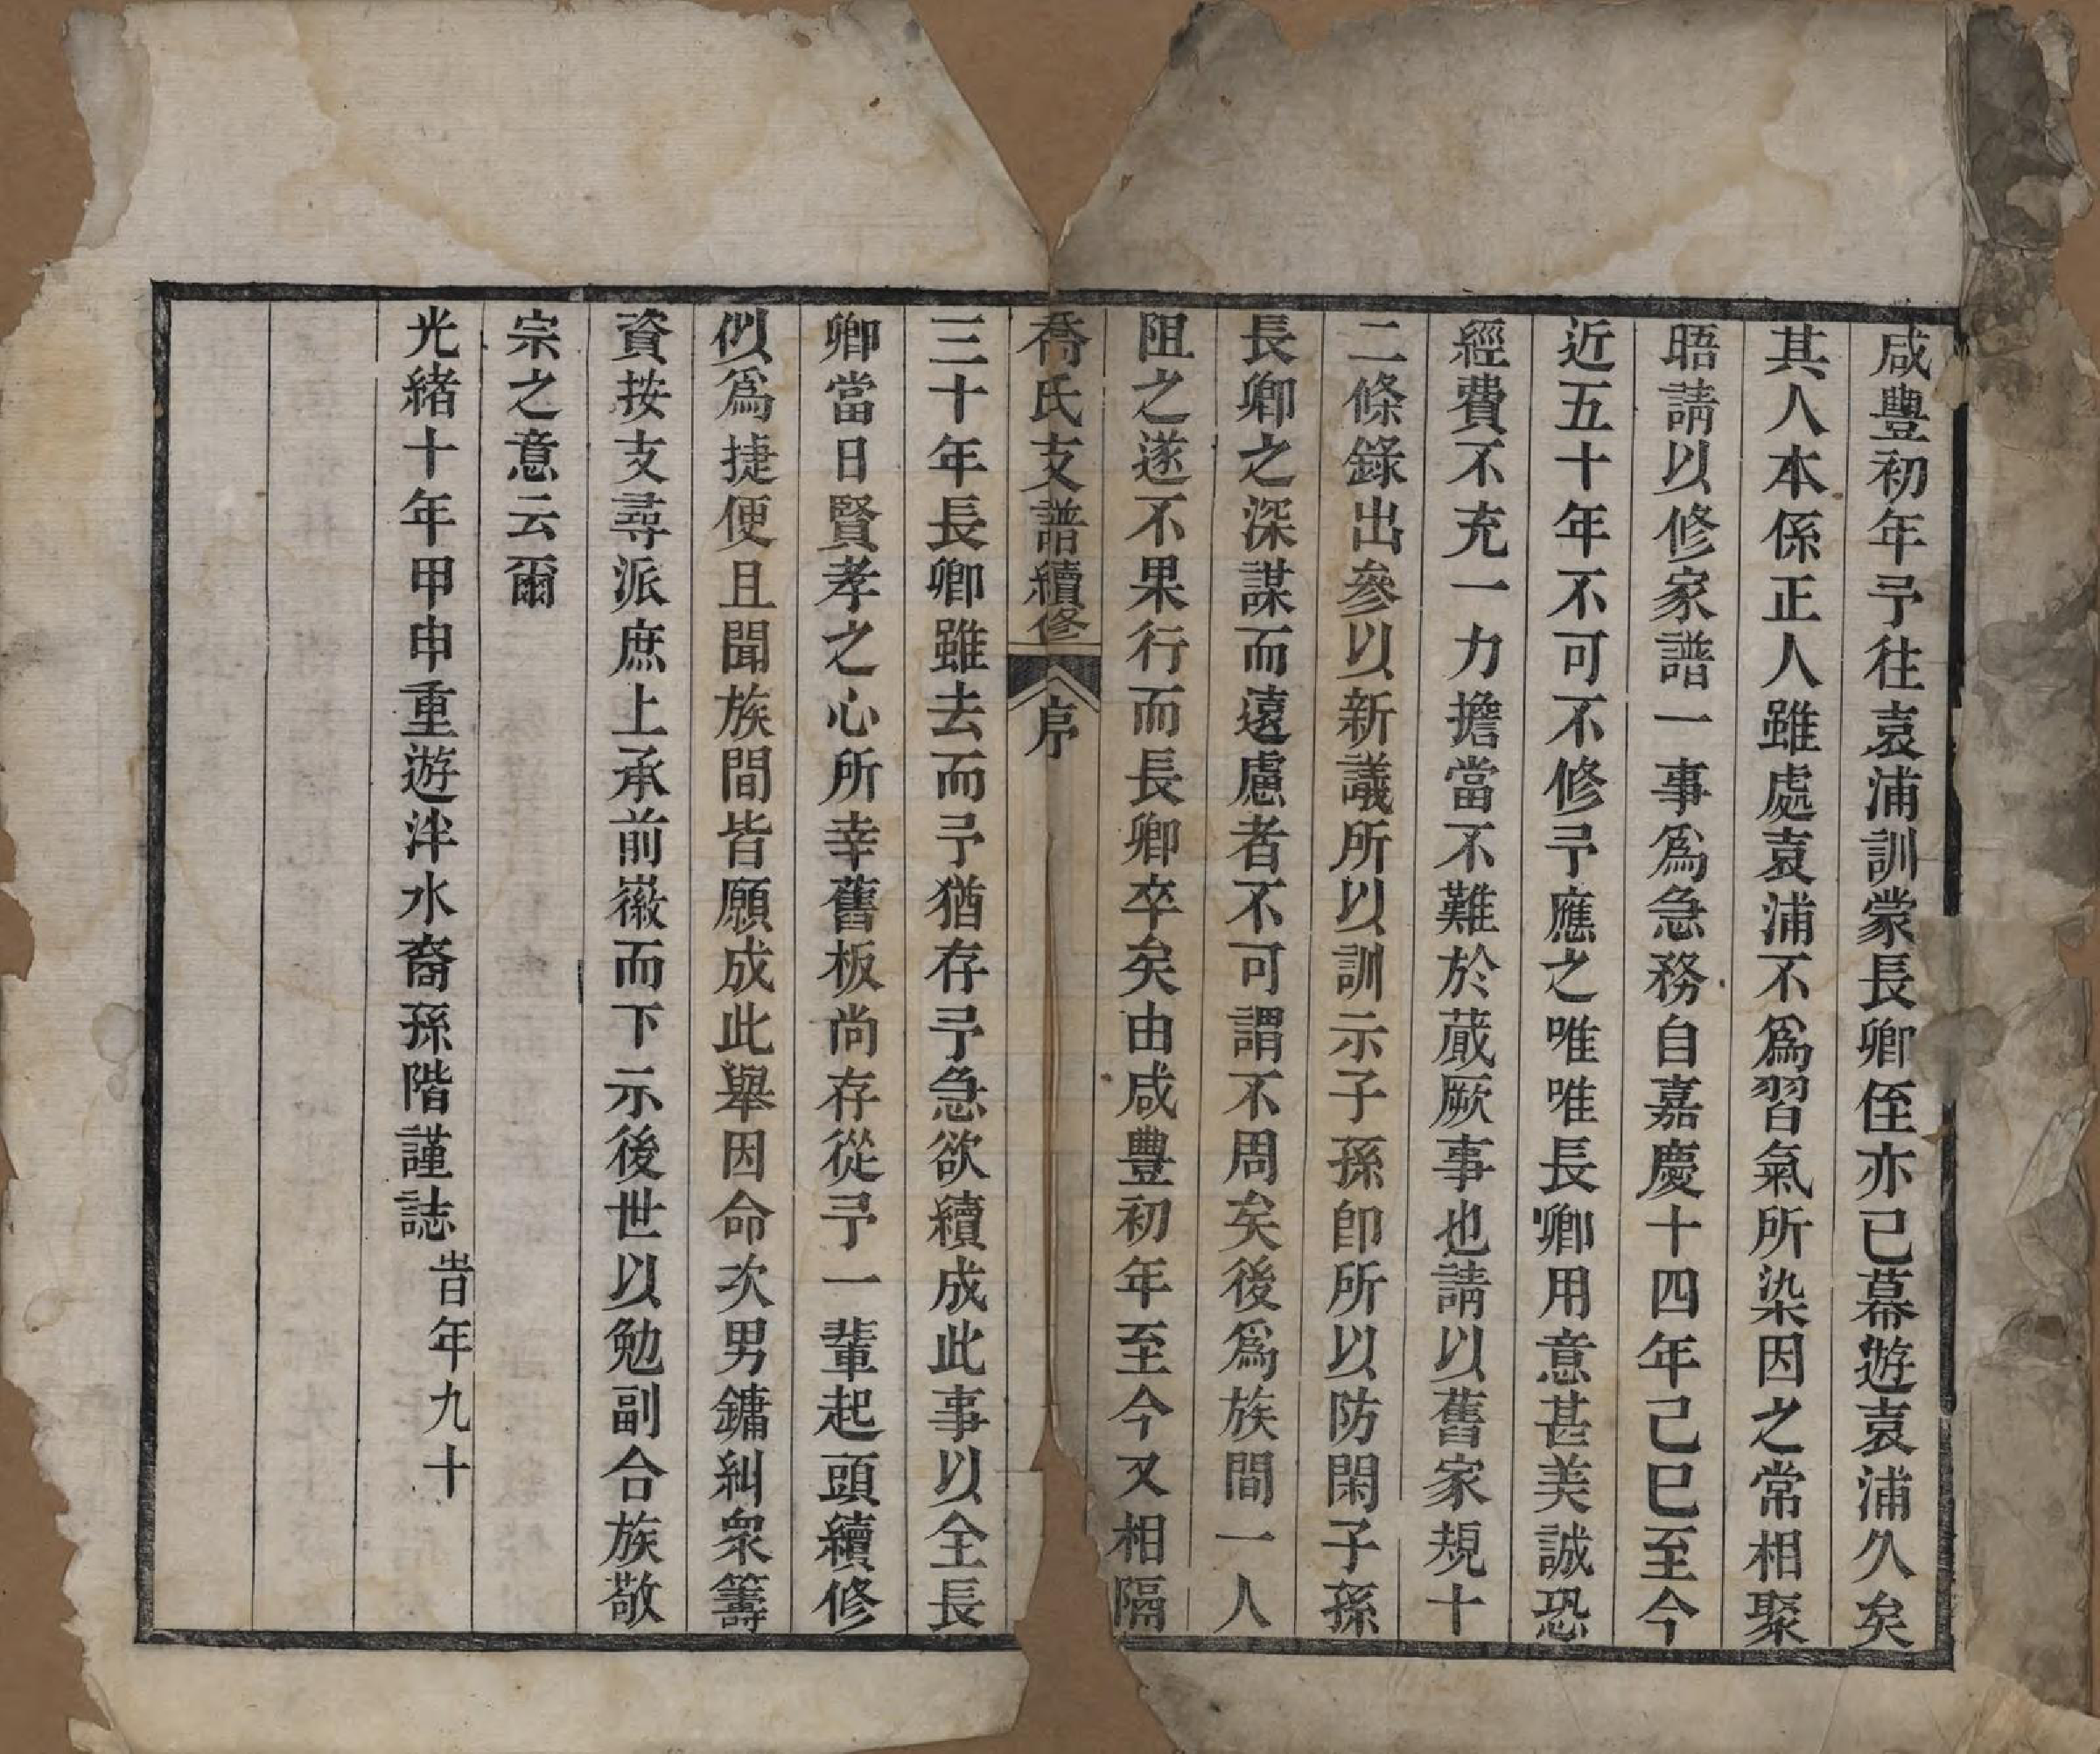 咸豐初年予往袁浦訓蒙長卿侄亦已幕遊袁浦久矣
其人本係正人雖處袁浦不爲習氣所染因之常相聚
晤請以修家譜一事爲急務自嘉慶十四年己巳至今
近五十年不可不修予應之唯唯長卿用意甚美誠恐
經費不充一力擔當不難於蕆厥事也請以舊家規十
二條錄出參以新議所以訓示子孫卽所以防閑子孫
長卿之深謀而遠慮者不可謂不周矣後爲族間一人
阻之遂不果行而長卿卒矣由咸豐初年至今又相隔
喬氏支譜續修
序
三十年長卿雖去而予猶存予急欲續成此事以全長
卿當日賢孝之心所幸舊板尚存從予一輩起頭續修
似爲捷便且聞族間皆願成此舉因命次男鏞糾衆籌
資按支尋派庶上承前徽而下示後世以勉副合族敬
宗之意云爾
光緒十年甲申重遊泮水裔孫階謹誌
旹年九十